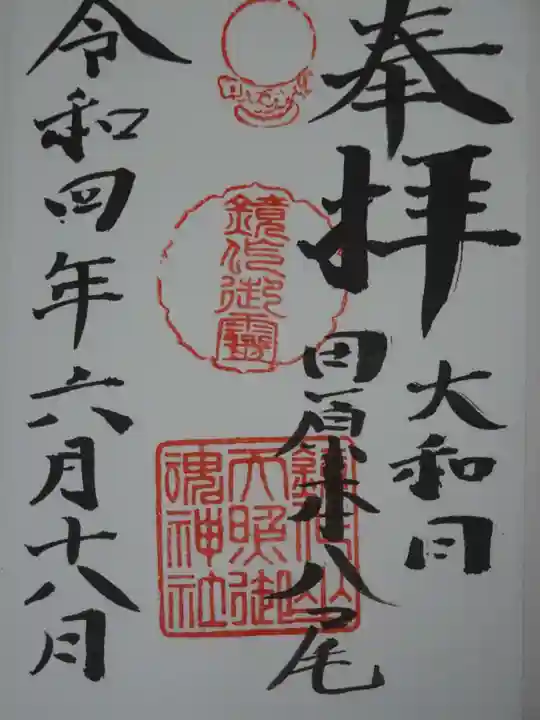 奉拝
大和国
田原本八尾
鏡作御靈
鏡作坐
天照御
魂神社
令和四年六月十八日